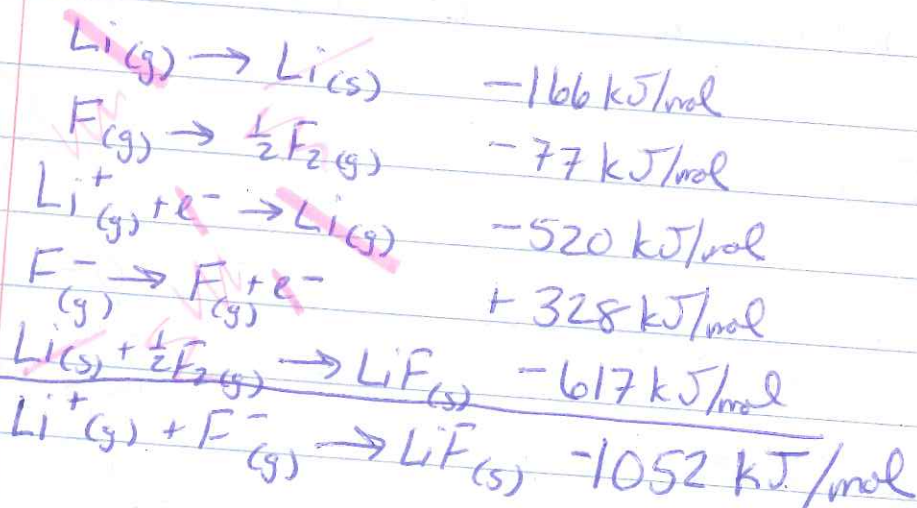 Li(g) → Li(s) -166 kJ/mol
F(g) → 1/2 F2(g) -77 kJ/mol
Li+(g) + e- → Li(g) -520 kJ/mol
F-(g) → F(g) + e- + 328 kJ/mol
Li(s) + 1/2 F2(g) → LiF(s) -617 kJ/mol
Li+(g) + F-(g) → LiF(s) -1052 kJ/mol